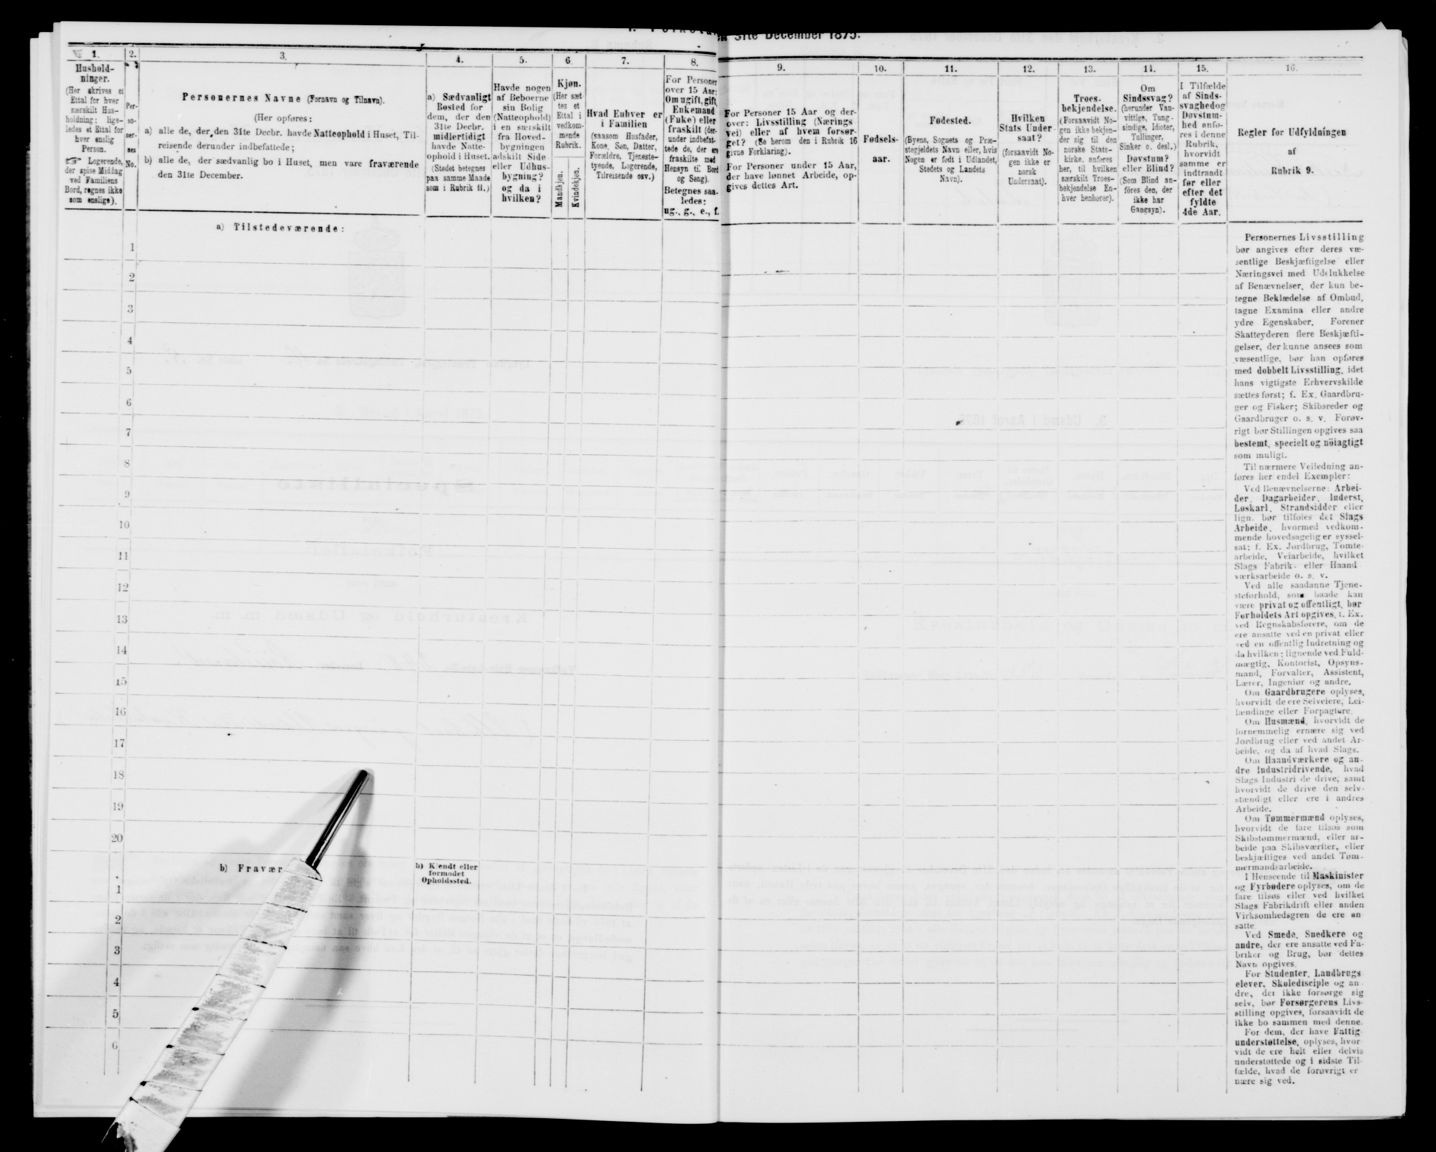 31te December 1875.
1.
Hushold-
ninger.
(Her skrives et
Ettal for hver
særskilt Hus-
holdning; lige-
ledes et Ettal for
hver enslig
Person.
☞ Logerende,
der spise Middag
ved Familiens
Bord, regnes ikke
som enslige).
2.
Per-
so-
ner-
nes
No.
3.
Personernes Navne (Fornavn og Tilnavn).
(Her opføres:
a) alle de, der den 31te Decbr. havde Natteophold i Huset, Til-
reisende derunder indbefattede;
b) alle de, der sædvanlig bo i Huset, men vare fraværende
den 31te December.
4.
a) Sædvanligt
Bosted for
dem, der den
31te Decbr.
midlertidigt
havde Natte-
ophold i Huset.
(Stedet betegnes
paa samme Maade
som i Rubrik 11.)
5.
Havde nogen
af Beboerne
sin Bolig
(Natteophold)
i en særskilt
fra Hoved-
bygningen
adskilt Side-
eller Udhus-
bygning?
og da i
hvilken?
6
Kjøn.
(Her sæt-
tes et
Ettal i
vedkom-
mende
Rubrik.
Mandkjøn.
Kvindekjøn.
7.
Hvad Enhver er
i Familien
(saasom Husfader,
Kone, Søn, Datter,
Forældre, Tjeneste-
tyende, Logerende,
Tilreisende osv.)
8.
For Personer
over 15 Aar:
Om ugift, gift,
Enkemand
(Enke) eller
fraskilt (der-
under indbefat-
tede de, der ere
fraskilte med
Hensyn til Bord
og Seng).
Betegnes saa-
ledes:
ug., g., e., f.
9.
For Personer 15 Aar og der-
over: Livsstilling (Nærings-
vei) eller af hvem forsør-
get? (Se herom den i Rubrik 16
givne Forklaring).
For Personer under 15 Aar,
der have lønnet Arbeide, op-
gives dettes Art.
10.
Fødsels-
aar.
11.
Fødested.
(Byens, Sognets og Præ-
stegjeldets Navn eller, hvis
Nogen er født i Udlandet,
Stedets og Landets
Navn).
12.
Hvilken
Stats Under-
saat?
(forsaavidt No-
gen ikke er
norsk
Undersaat).
13.
Troes-
bekjendelse.
(Forsaavidt No-
gen ikke bekjen-
der sig til den
norske Stats-
kirke, anføres
her, til hvilken
særskilt Troes-
bekjendelse En-
hver henhører).
14.
Om
Sindssvag?
(herunder Van-
vittige, Tung-
sindige, Idioter,
Tullinger,
Sinker o. desl.)
Døvstum?
eller Blind?
(Som Blind an-
føres den, der
ikke har
Gangsyn).
15.
I Tilfælde
af Sinds-
svaghed og
Døvstum-
hed anfø-
res i denne
Rubrik,
hvorvidt
samme er
indtraadt
før eller
efter det
fyldte
4de Aar.
16.
Regler for Udfyldningen
af
Rubrik 9.
a) Tilstedeværende:
1
2
3
4
5
6
7
8
9
10
11
12
13
14
15
16
17
18
19
20
b) Fravær
b) Kjendt eller
formodet
Opholdssted.
1
2
3
4
5
6
Personernes Livsstilling
bør angives efter deres væ-
sentlige Beskjæftigelse eller
Næringsvei med Udelukkelse
af Benævnelser, der kun be-
tegne Beklædelse af Ombud,
tagne Examina eller andre
ydre Egenskaber. Forener
Skatteyderen flere Beskjæfti-
gelser, der kunne ansees som
væsentlige, bør han opføres
med dobbelt Livsstilling, idet
hans vigtigste Erhvervskilde
sættes først; f. Ex. Gaardbru-
ger og Fisker; Skibsreder og
Gaardbruger o. s. v. Forøv-
rigt bør Stillingen opgives saa
bestemt, specielt og nøiagtigt
som muligt.
Til nærmere Veiledning an-
føres her endel Exempler:
Ved Benævnelserne: Arbei-
der, Dagarbeider, Inderst,
Løskarl, Strandsidder eller
lign. bør tilføies det Slags
Arbeide, hvormed vedkom-
mende hovedsagelig er syssel-
sat; f. Ex. Jordbrug, Tomte-
arbeide, Veiarbeide, hvilket
Slags Fabrik- eller Haand-
værksarbeide o. s. v.
Ved alle saadanne Tjene-
steforhold, som baade kan
være privat og offentligt, bør
Forholdets Art opgives, f. Ex.
ved Regnskabsførere, om de
ere ansatte ved en privat eller
ved en offentlig Indretning og
da hvilken; lignende ved Fuld-
mægtig, Kontorist, Opsyns-
mand, Forvalter, Assistent,
Lærer, Ingeniør og andre.
Om Gaardbrugere oplyses,
hvorvidt de ere Selveiere, Lei-
lændinge eller Forpagtere.
Om Husmænd, hvorvidt de
fornemmelig ernære sig ved
Jordbrug eller ved andet Ar-
beide, og da af hvad Slags.
Om Haandværkere og an-
dre Industridrivende, hvad
Slags Industri de drive, samt
hvorvidt de drive den selv-
stændigt eller ere i andres
Arbeide.
Om Tømmermænd oplyses,
hvorvidt de fare tilsøs som
Skibstømmermænd, eller ar-
beide paa Skibsværfter, eller
beskjæftiges ved andet Tøm-
mermandsarbeide.
I Henseende til Maskinister
og Fyrbødere oplyses, om de
fare tilsøs eller ved hvilket
Slags Fabrikdrift eller anden
Virksomhedsgren de ere an-
satte
Ved Smede, Snedkere og
andre, der ere ansatte ved Fa-
briker og Brug, bør dettes
Navn opgives.
For Studenter, Landbrugs-
elever, Skoledisciple og an-
dre, der ikke forsørge sig
selv, bør Forsørgerens Livs-
stilling opgives, forsaavidt de
ikke bo sammen med denne.
For dem, der have Fattig-
understøttelse, oplyses, hvor-
vidt de ere helt eller delvis
understøttede og i sidste Til-
fælde, hvad de forøvrigt er-
nære sig ved.